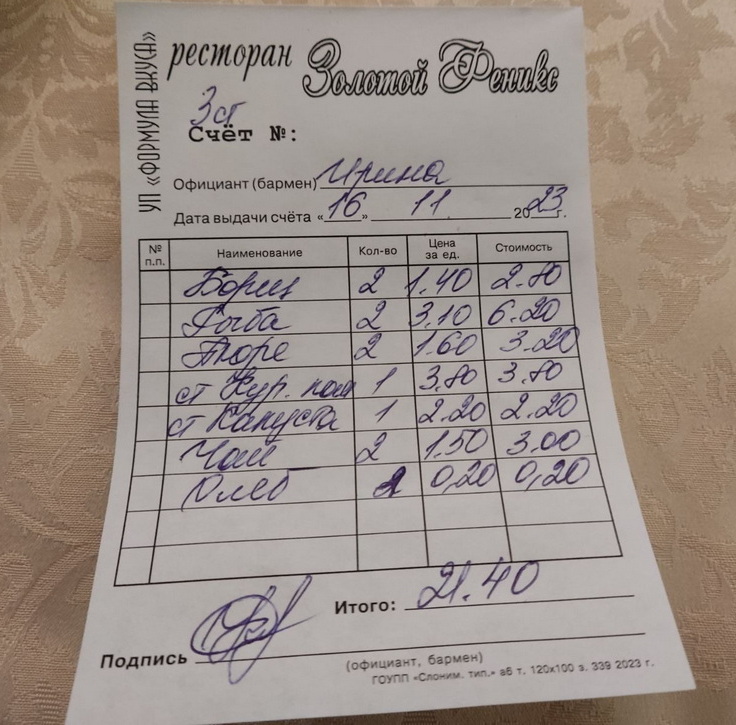 УП «ФОРМУЛА ВКУСА»
ресторан Золотой Феникс
3ст
Счёт №:
Официант (бармен) Ирина
Дата выдачи счёта «16» 11 2023г.
№ п.п. Наименование Кол-во Цена за ед. Стоимость
Борщ 2 1.40 2.80
Рыба 2 3.10 6.20
Пюре 2 1.60 3.20
ст Кур. 1 3.80 3.80
ст Капуста 1 2.20 2.20
Чай 2 1.50 3.00
Хлеб 0,20 0,20
Итого: 21.40
Подпись
(официант, бармен)
ГОУПП «Слоним. тип.» зб т. 120х100 з. 339 2023 г.